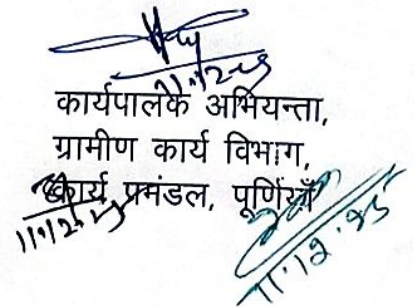 11.12.25
कार्यपालक अभियन्ता,
ग्रामीण कार्य विभाग,
कार्य प्रमंडल, पूर्णियाँ
11.12.25
11.12.25